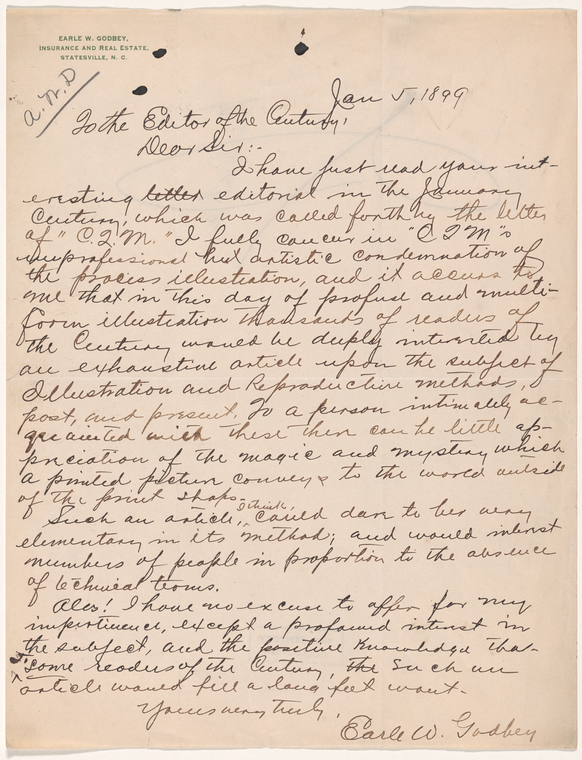 EARLE W. GODBEY,
INSURANCE AND REAL ESTATE,
STATESVILLE, N. C.
A. W. D
Jan 5, 1899
To the Editor of the Century,
Dear Sir:-
I have just read your int-
eresting letter editorial in the January
Century, which was called forth by the letter
of "C. T. M." I fully concur in "C T M"s
unprofessional but artistic condemnation of
the process illustration, and it occurs to
me that in this day of profuse and multi-
form illustration thousands of readers of
the Century would be deeply interested by
an exhaustive article upon the subject of
Illustration and Reproductive methods,
past, and present. To a person intimately ac-
quainted with these there can be little ap-
preciation of the magic and mystery which
a printed picture conveys to the world outside
of the print shops.
Such an article, I think, could dare to be very
elementary in its method; and would interest
numbers of people in proportion to the absence
of technical terms.
Alas! I have no excuse to offer for my
impertinence, except a profound interest in
the subject, and the positive knowledge that
some readers of the Century, the such an
article would fill a long felt want.
Yours very truly,
Earle W. Godbey